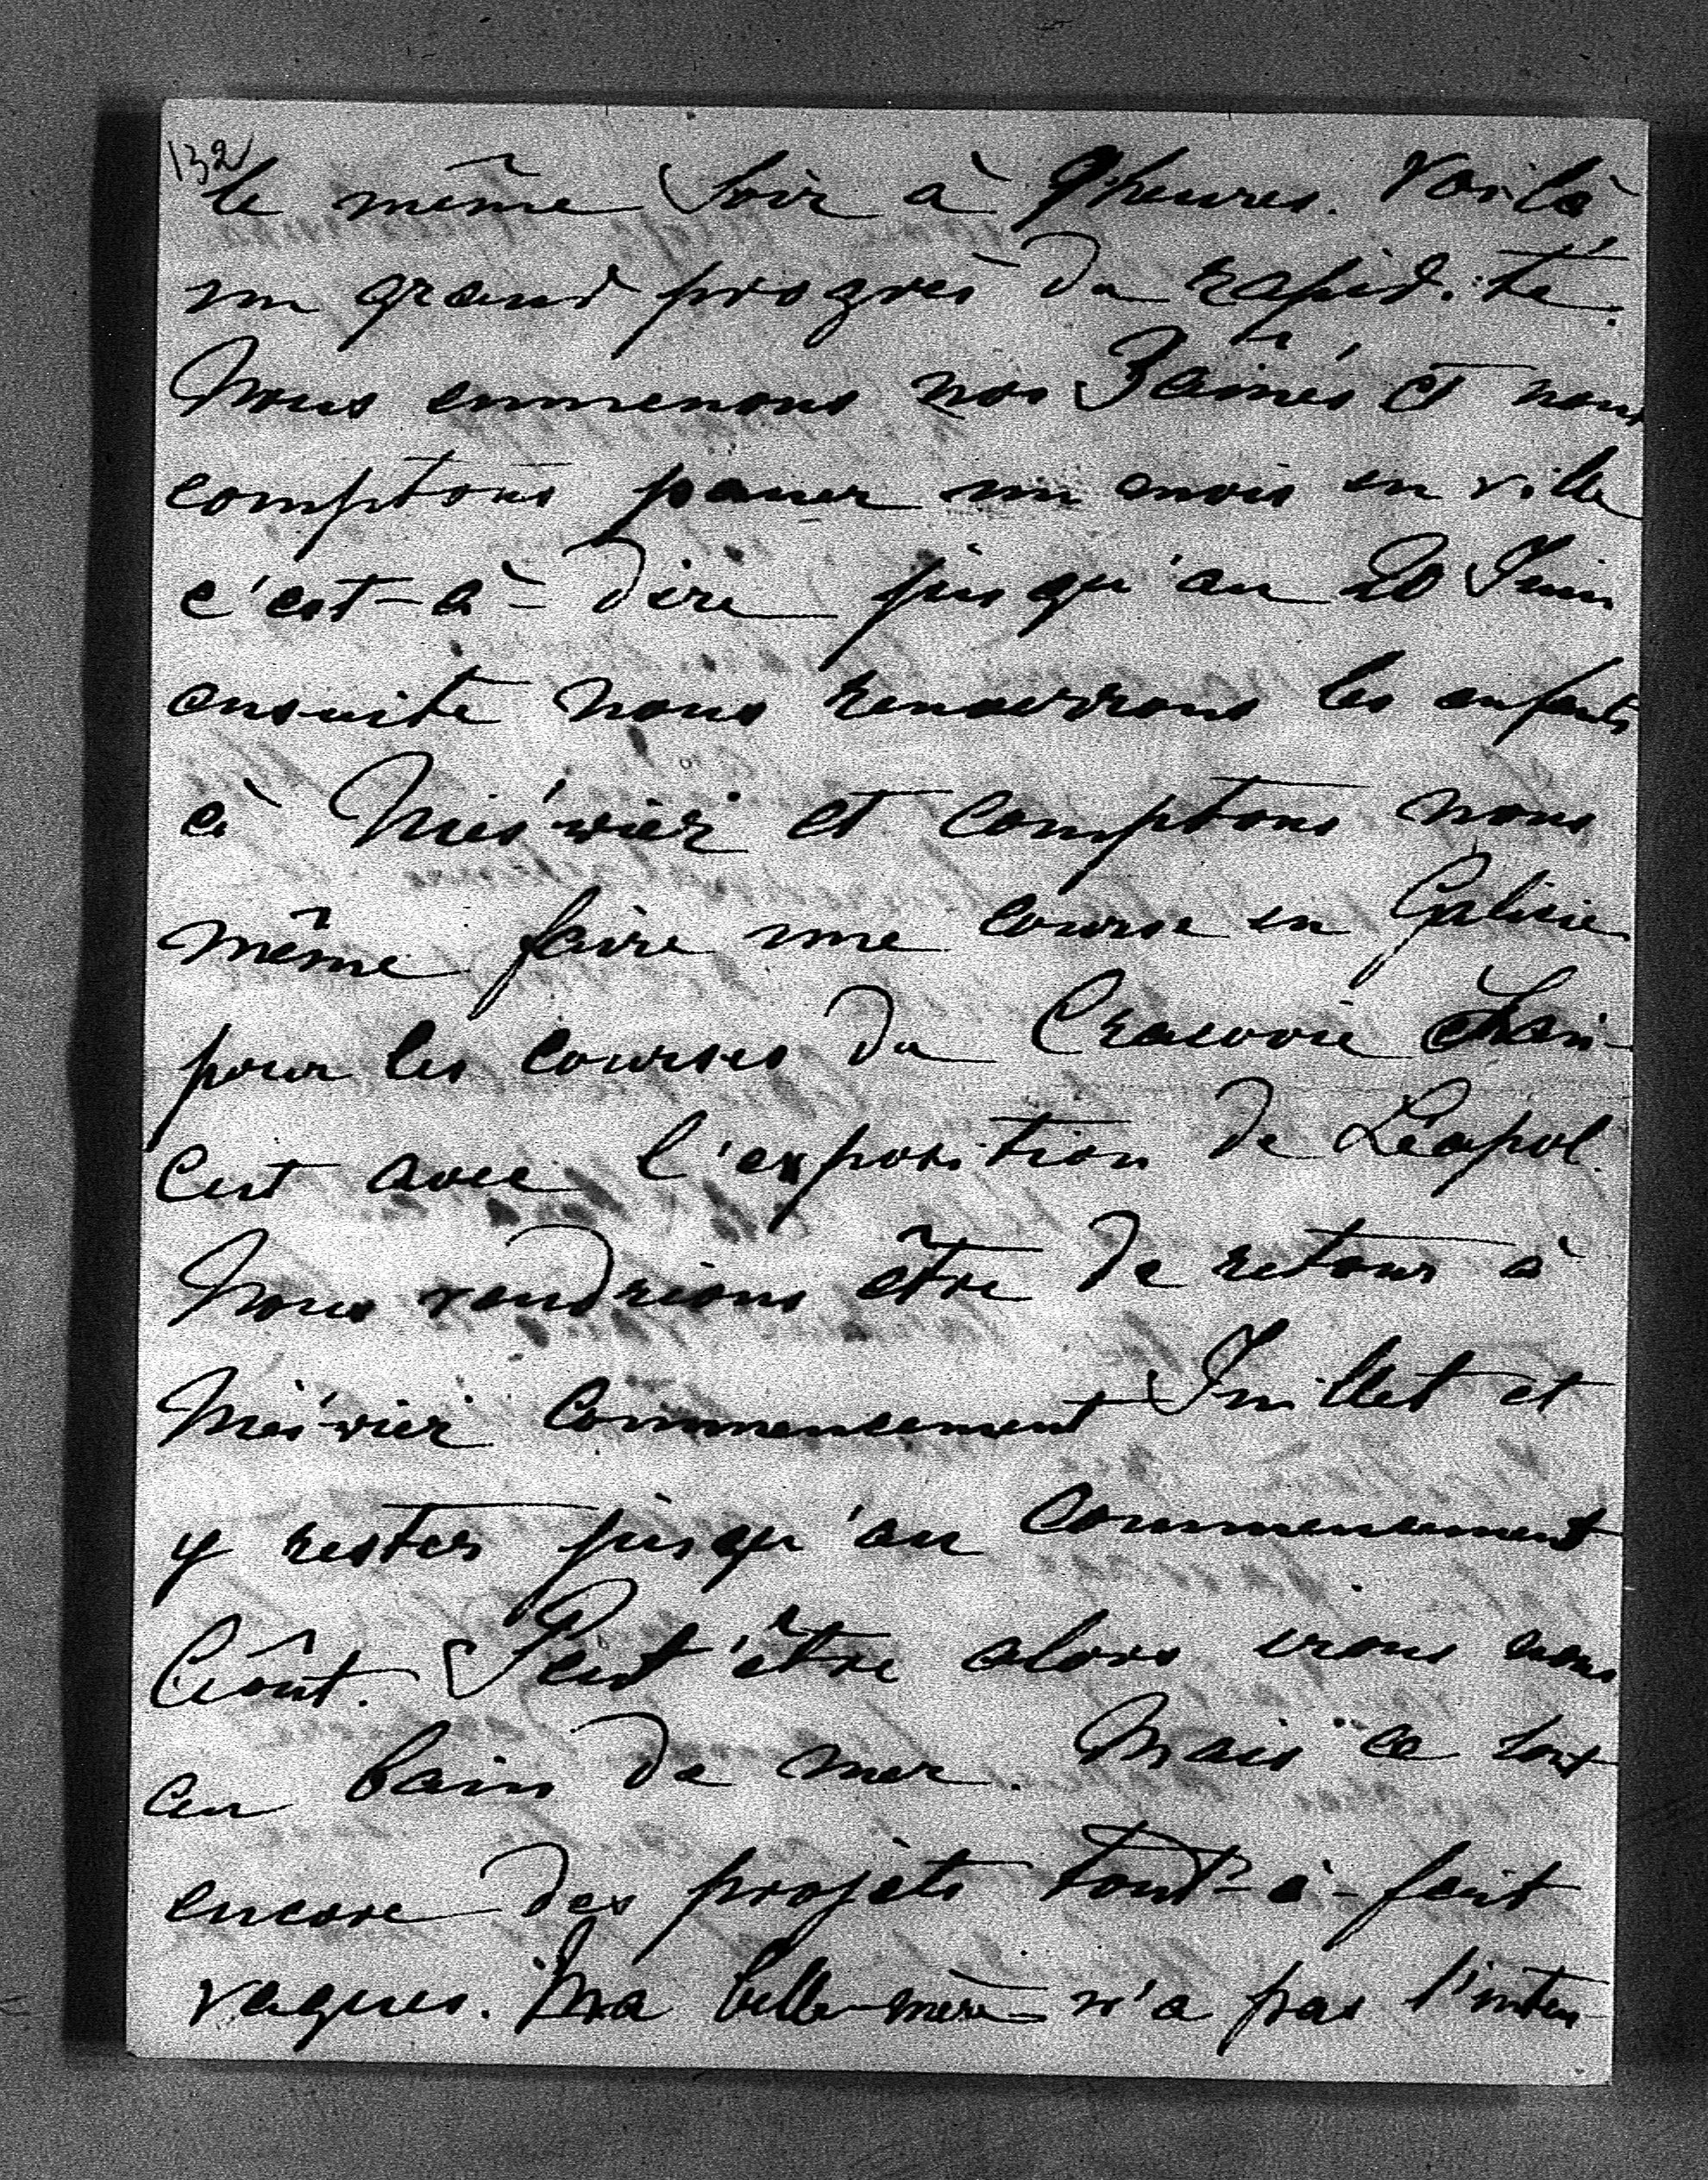 132
le même soir à 9 heures. Voilà
un grand progrès de rapidité.
Nous emmenons nos 3 aînés et nous
comptons passer un mois en ville
c'est-à-dire jusqu'au 20 Juin
ensuite nous renverrons les enfants
à Nieśwież et comptons nous
même faire une course en Galicie
pour les courses de Cracovie
C'est avec l'exposition de Léopol.
Nous voudrions être de retour à
Nieśwież commencement Juillet et
y rester jusqu'au commencement
Août. Peut'être alors irons nous
au bain de mer. Mais ce sont
encore des projets tout-à-fait
vagues. Ma belle-mère n'a pas l'inten-